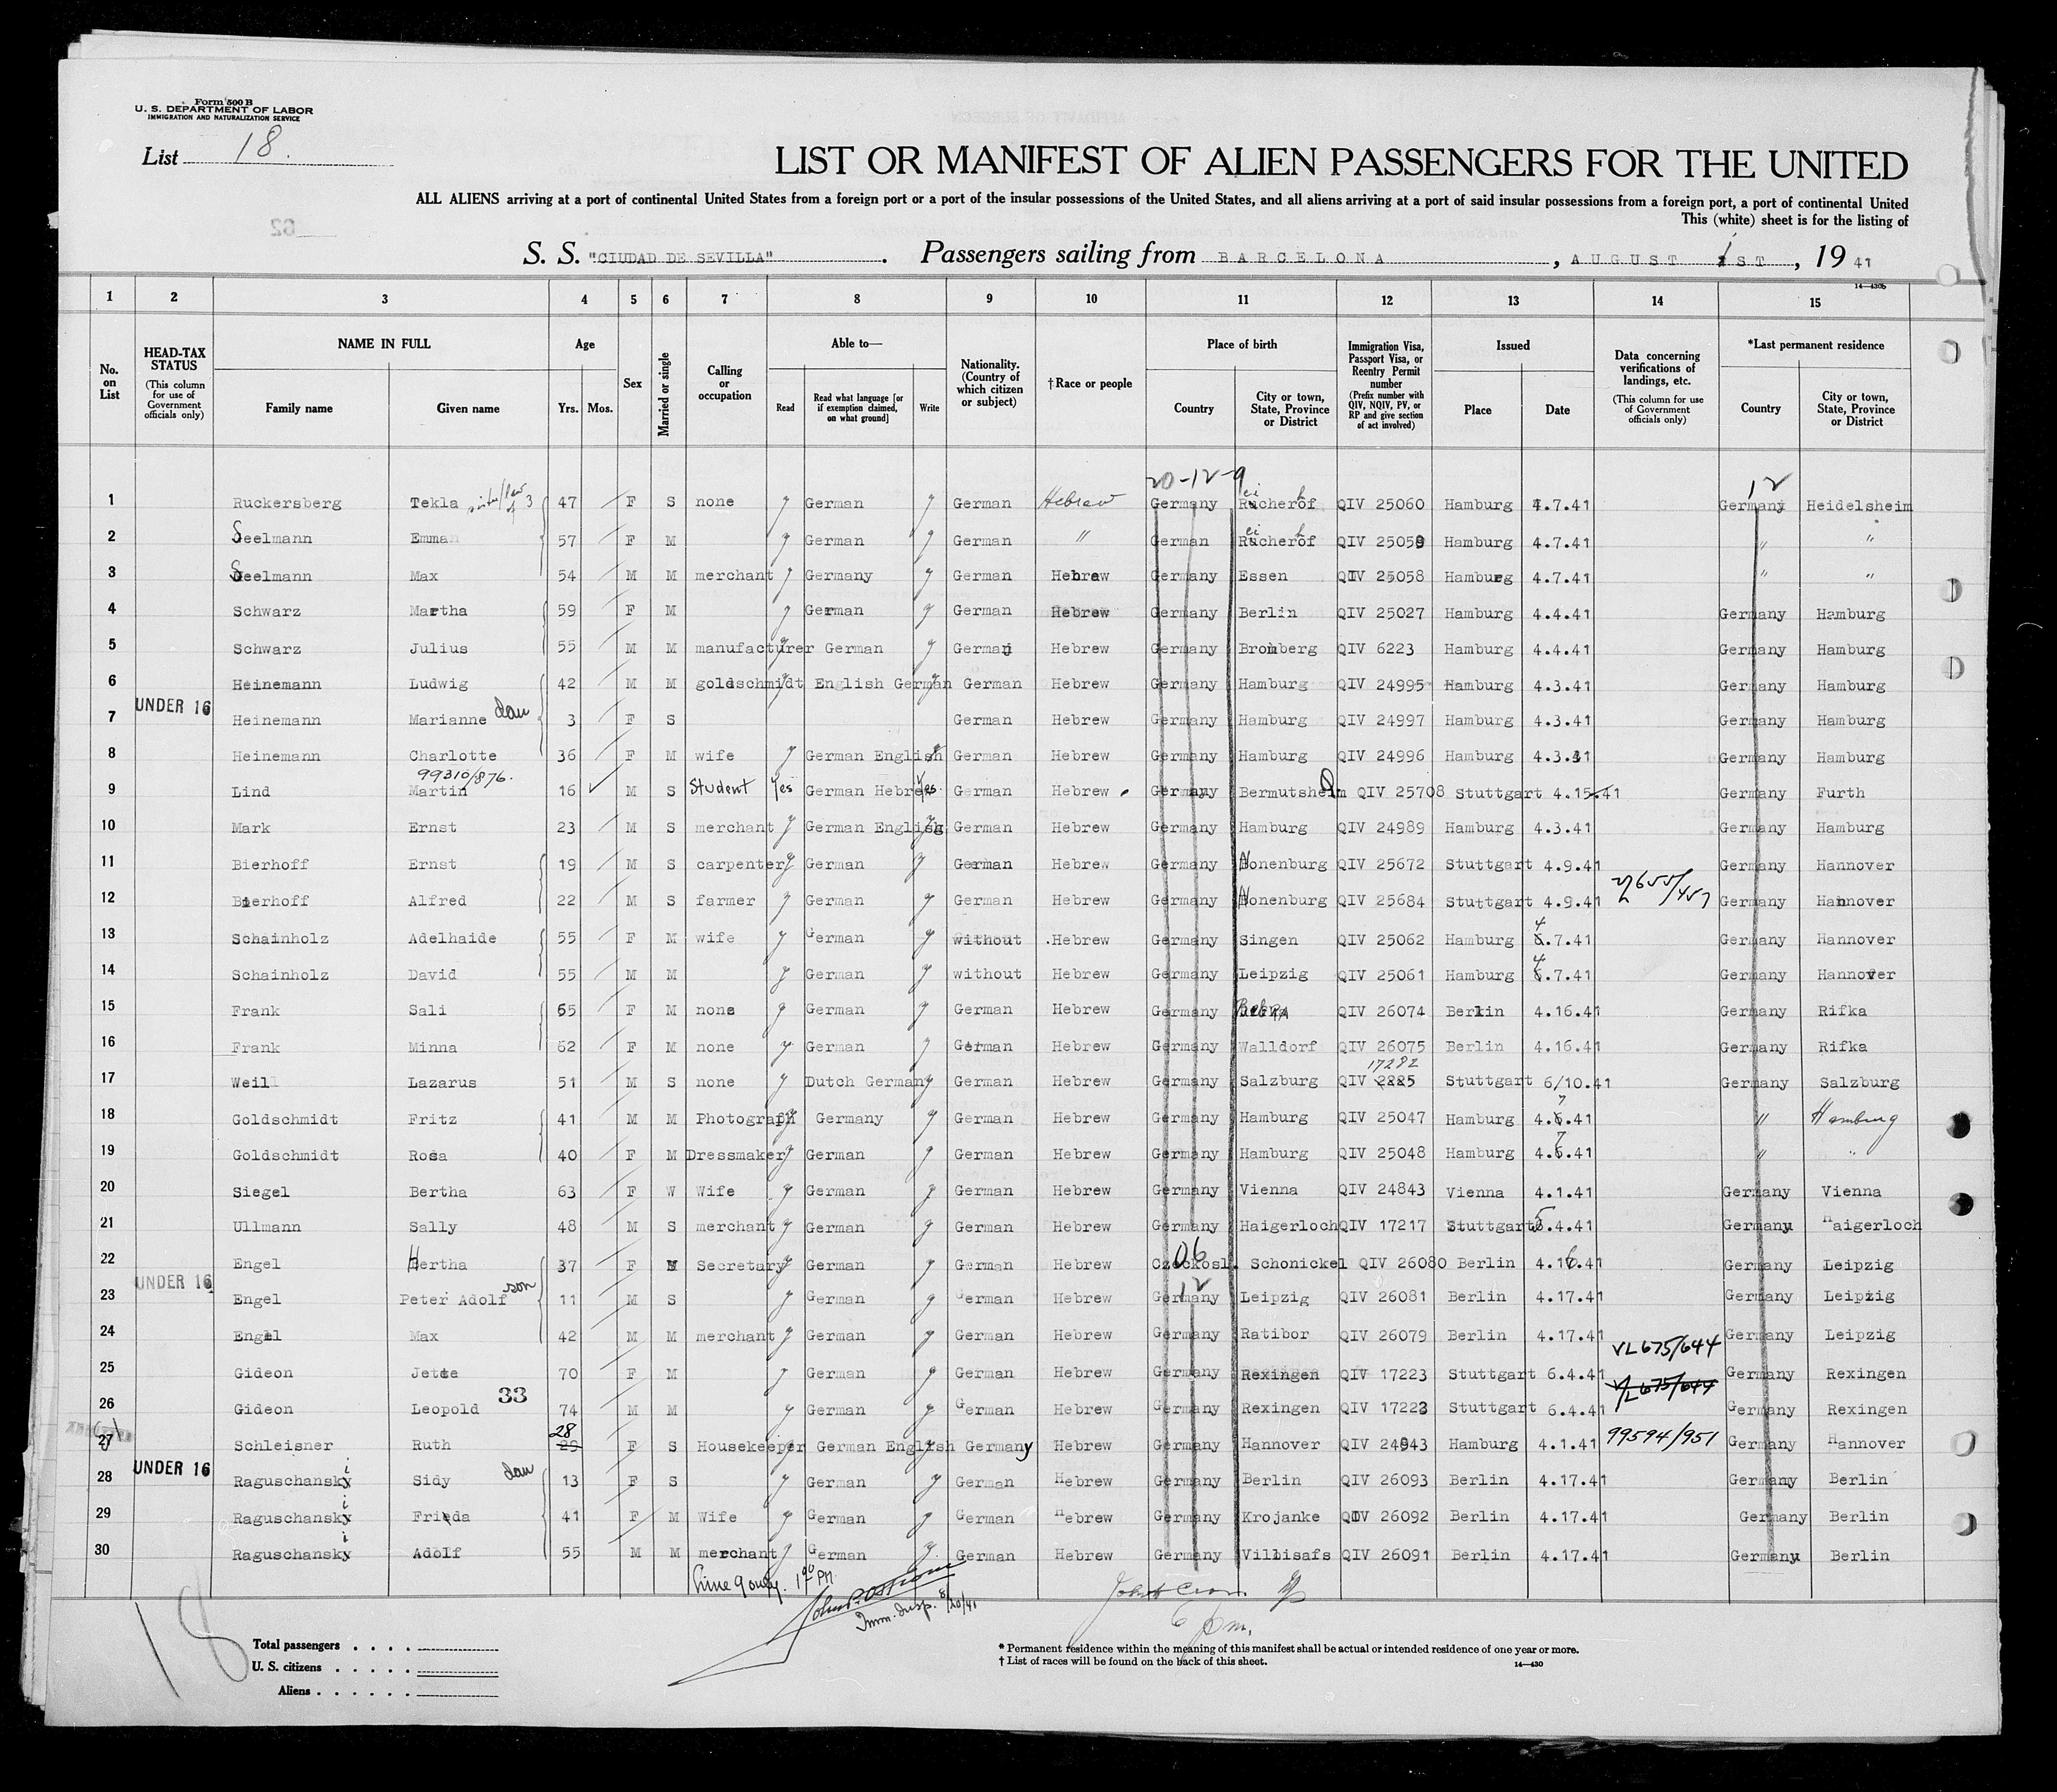 Form 500 B
U. S. DEPARTMENT OF LABOR
IMMIGRATION AND NATURALIZATION SERVICE
List 18.
LIST OR MANIFEST OF ALIEN PASSENGERS FOR THE UNITED
ALL ALIENS arriving at a port of continental United States from a foreign port or a port of the insular possessions of the United States, and all aliens arriving at a port of said insular possessions from a foreign port, a port of continental United
This (white) sheet is for the listing of
62
S. S. "CIUDAD DE SEVILLA". Passengers sailing from BARCELONA, AUGUST 1ST, 19 41
14—430b
1 2 3 4 5 6 7 8 9 10 11 12 13 14 15
No. on List
HEAD-TAX STATUS (This column for use of Government officials only)
NAME IN FULL Family name Given name
Age Yrs. Mos.
Sex
Married or single
Calling or occupation
Able to— Read Read what language [or if exemption claimed, on what ground] Write
Nationality. (Country of which citizen or subject)
†Race or people
Place of birth Country City or town, State, Province or District
Immigration Visa, Passport Visa, or Reentry Permit number (Prefix number with QIV, NQIV, PV, or RP and give section of act involved)
Issued Place Date
Data concerning verifications of landings, etc. (This column for use of Government officials only)
*Last permanent residence Country City or town, State, Province or District
20-12-9 12
1 Ruckersberg Tekla 3 47 F S none y German y German Hebrew Germany Reicherhof QIV 25060 Hamburg 4.7.41 Germany Heidelsheim
2 Seelmann Emma 57 F M y German y German " German Reicherhof QIV 25059 Hamburg 4.7.41 " "
3 Seelmann Max 54 M M merchant y Germany y German Hebrew Germany Essen QIV 25058 Hamburg 4.7.41 " "
4 Schwarz Martha 59 F M y German y German Hebrew Germany Berlin QIV 25027 Hamburg 4.4.41 Germany Hamburg
5 Schwarz Julius 55 M M manufacturer y German y German Hebrew Germany Bromberg QIV 6223 Hamburg 4.4.41 Germany Hamburg
6 Heinemann Ludwig 42 M M goldschmidt y English German y German Hebrew Germany Hamburg QIV 24995 Hamburg 4.3.41 Germany Hamburg
UNDER 16
7 Heinemann Marianne dau 3 F S German Hebrew Germany Hamburg QIV 24997 Hamburg 4.3.41 Germany Hamburg
8 Heinemann Charlotte 36 F M wife y German English y German Hebrew Germany Hamburg QIV 24996 Hamburg 4.3.41 Germany Hamburg
99310/876.
9 Lind Martin 16 M S Student Yes German Hebrew Yes German Hebrew Germany Bermutsheim QIV 25708 Stuttgart 4.15.41 Germany Furth
10 Mark Ernst 23 M S merchant y German English y German Hebrew Germany Hamburg QIV 24989 Hamburg 4.3.41 Germany Hamburg
11 Bierhoff Ernst 19 M S carpenter y German y German Hebrew Germany Nonenburg QIV 25672 Stuttgart 4.9.41 Germany Hannover
12 Bierhoff Alfred 22 M S farmer y German y German Hebrew Germany Nonenburg QIV 25684 Stuttgart 4.9.41 Germany Hannover
13 Schainholz Adelhaide 55 F M wife y German y without Hebrew Germany Singen QIV 25062 Hamburg 4.7.41 Germany Hannover
14 Schainholz David 55 M M y German y without Hebrew Germany Leipzig QIV 25061 Hamburg 4.7.41 Germany Hannover
15 Frank Sali 65 F M none y German y German Hebrew Germany Bebra QIV 26074 Berlin 4.16.41 Germany Rifka
16 Frank Minna 62 F M none y German y German Hebrew Germany Walldorf QIV 26075 Berlin 4.16.41 Germany Rifka
17282
17 Weil Lazarus 51 M S none y Dutch German y German Hebrew Germany Salzburg QIV 2225 Stuttgart 6/10.41 Germany Salzburg
18 Goldschmidt Fritz 41 M M Photograph y Germany y German Hebrew Germany Hamburg QIV 25047 Hamburg 4.7.41 " Hamburg
19 Goldschmidt Rosa 40 F M Dressmaker y German y German Hebrew Germany Hamburg QIV 25048 Hamburg 4.7.41 " "
20 Siegel Bertha 63 F W Wife y German y German Hebrew Germany Vienna QIV 24843 Vienna 4.1.41 Germany Vienna
21 Ullmann Sally 48 M S merchant y German y German Hebrew Germany Haigerloch QIV 17217 Stuttgart 5.4.41 Germany Haigerloch
06
22 Engel Hertha 37 F M Secretary y German y German Hebrew Czeckosl. Schonickel QIV 26080 Berlin 4.16.41 Germany Leipzig
UNDER 16 12
23 Engel Peter Adolf son 11 M S y German y German Hebrew Germany Leipzig QIV 26081 Berlin 4.17.41 Germany Leipzig
24 Engel Max 42 M M merchant y German y German Hebrew Germany Ratibor QIV 26079 Berlin 4.17.41 Germany Leipzig
VL675/644
25 Gideon Jette 70 F M y German y German Hebrew Germany Rexingen QIV 17223 Stuttgart 6.4.41 Germany Rexingen
33 VL675/644
26 Gideon Leopold 74 M M y German y German Hebrew Germany Rexingen QIV 17223 Stuttgart 6.4.41 Germany Rexingen
27 Schleisner Ruth 28 F S Housekeeper German English y Germany Hebrew Germany Hannover QIV 24943 Hamburg 4.1.41 99594/951 Germany Hannover
UNDER 16
28 Raguschanski Sidy dau 13 F S y German y German Hebrew Germany Berlin QIV 26093 Berlin 4.17.41 Germany Berlin
29 Raguschanski Frieda 41 F M Wife y German y German Hebrew Germany Krojanke QIV 26092 Berlin 4.17.41 Germany Berlin
30 Raguschanski Adolf 55 M M merchant y German y German Hebrew Germany Villisafs QIV 26091 Berlin 4.17.41 Germany Berlin
Line 9 only. 1 PM.
Imm. Insp. 8/20/41
18
Total passengers . . . .
U. S. citizens . . . . .
Aliens . . . . . .
* Permanent residence within the meaning of this manifest shall be actual or intended residence of one year or more.
† List of races will be found on the back of this sheet.
14—430